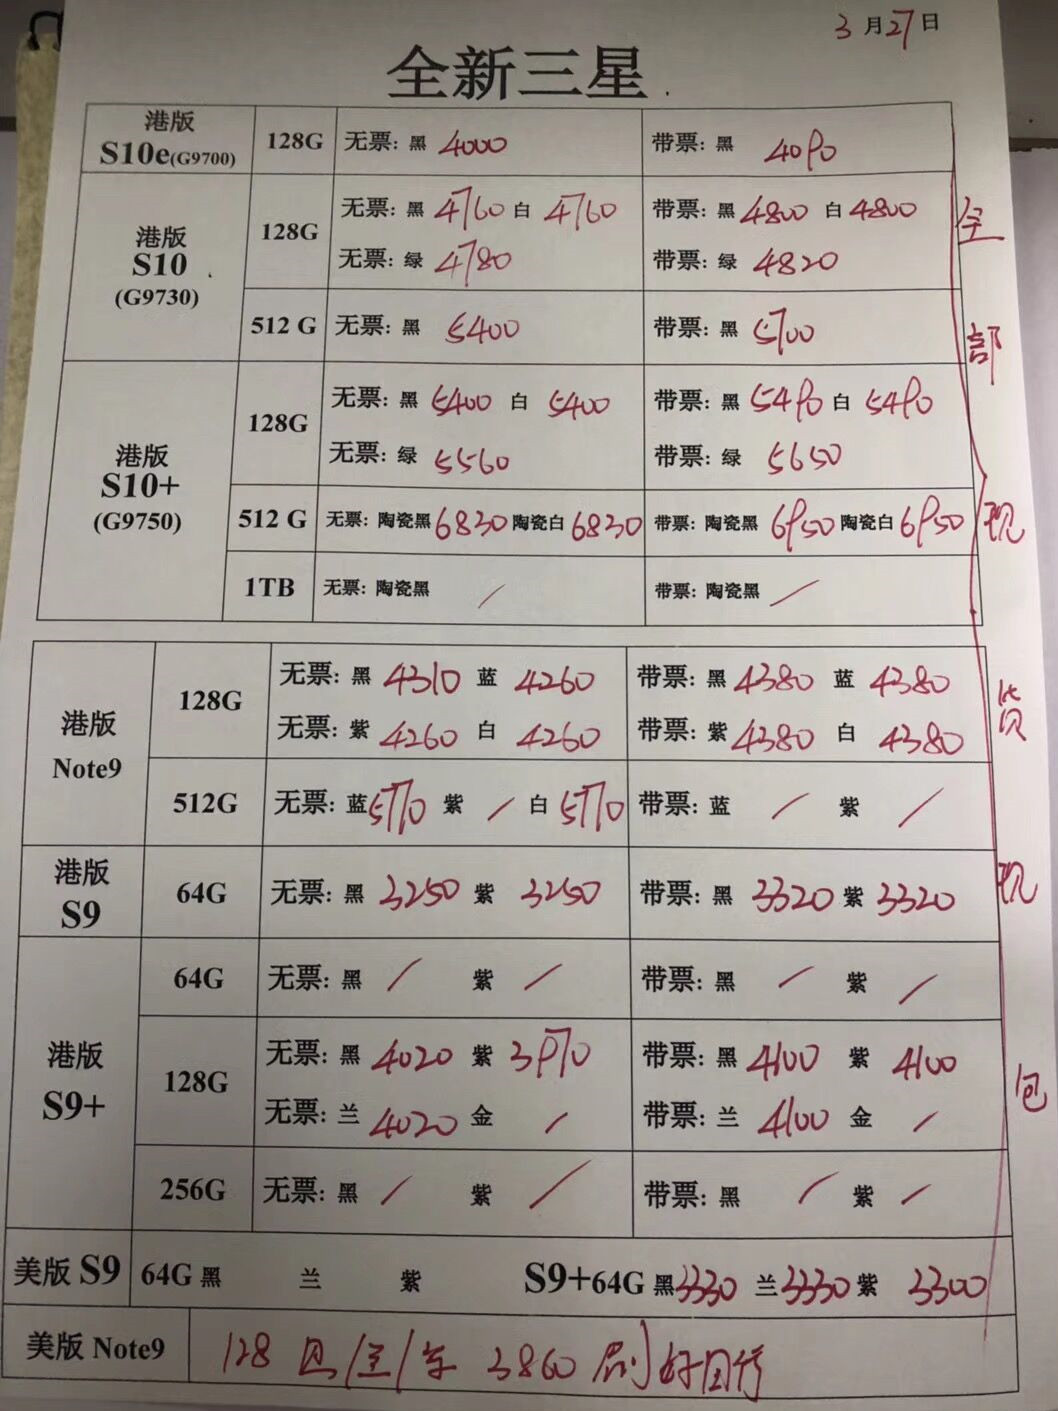 3月27日
全新三星
港版 S10e(G9700) 128G 无票: 黑 4000 带票: 黑 4090
港版 S10 (G9730) 128G 无票: 黑 4760 白 4760 带票: 黑 4800 白 4800
无票: 绿 4780 带票: 绿 4820
512 G 无票: 黑 5400 带票: 黑 5700
港版 S10+ (G9750) 128G 无票: 黑 5400 白 5400 带票: 黑 5490 白 5490
无票: 绿 5560 带票: 绿 5650
512 G 无票: 陶瓷黑 6830 陶瓷白 6830 带票: 陶瓷黑 6950 陶瓷白 6950
1TB 无票: 陶瓷黑 / 带票: 陶瓷黑 /
港版 Note9 128G 无票: 黑 4310 蓝 4260 带票: 黑 4380 蓝 4380
无票: 紫 4260 白 4260 带票: 紫 4380 白 4380
512G 无票: 蓝 5770 紫 / 白 5770 带票: 蓝 / 紫 /
港版 S9 64G 无票: 黑 3250 紫 3250 带票: 黑 3320 紫 3320
港版 S9+ 64G 无票: 黑 / 紫 / 带票: 黑 / 紫 /
128G 无票: 黑 4020 紫 3970 带票: 黑 4100 紫 4100
无票: 兰 4020 金 / 带票: 兰 4100 金 /
256G 无票: 黑 / 紫 / 带票: 黑 / 紫 /
美版 S9 64G 黑 兰 紫 S9+64G 黑 3330 兰 3330 紫 3300
美版 Note9 128 3860 刷好国行
全部现货现包